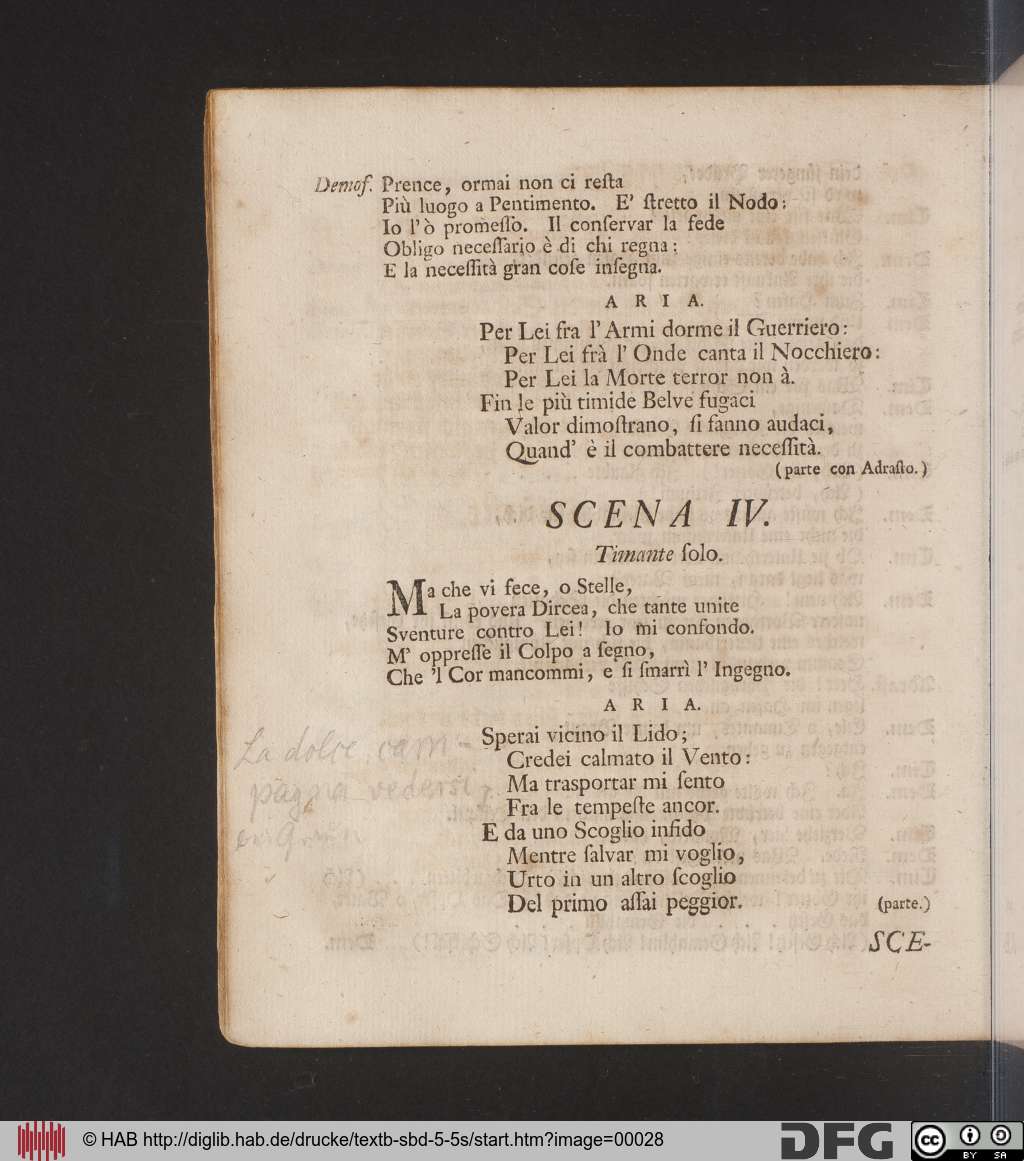 Demoſ. Prence, ormai non ci reſta
Più luogo a Pentimento. E' ſtretto il Nodo:
Io l' ò promeſſo. Il conſervar la fede
Obligo neceſſario è di chi regna;
E la neceſſità gran coſe inſegna.
A R I A.
Per Lei fra l' Armi dorme il Guerriero:
Per Lei frà l' Onde canta il Nocchiero:
Per Lei la Morte terror non à.
Fin le più timide Belve fugaci
Valor dimoſtrano, ſi fanno audaci,
Quand' è il combattere neceſſità.
(parte con Adraſto.)
SCENA IV.
Timante ſolo.
Ma che vi fece, o Stelle,
La povera Dircea, che tante unite
Sventure contro Lei! Io mi confondo.
M' oppreſſe il Colpo a ſegno,
Che 'l Cor mancommi, e ſi ſmarrì l' Ingegno.
A R I A.
Sperai vicino il Lido;
Credei calmato il Vento:
Ma trasportar mi ſento
Fra le tempeſte ancor.
E da uno Scoglio infido
Mentre ſalvar mi voglio,
Urto in un altro ſcoglio
Del primo aſſai peggior. (parte.)
SCE-
La dolce cam-
pagna vedersi
© HAB http://diglib.hab.de/drucke/textb-sbd-5-5s/start.htm?image=00028
DFG
cc BY SA